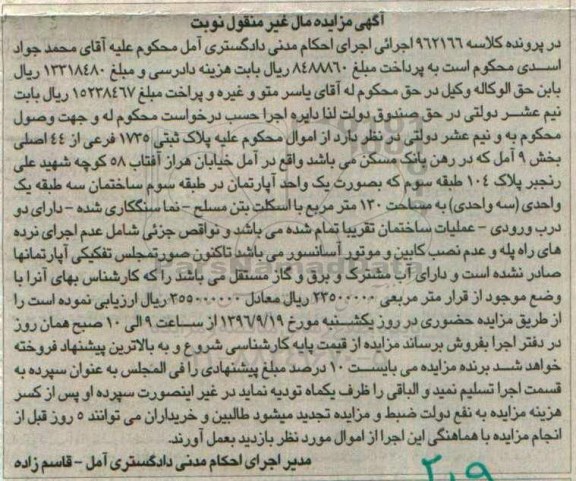 آگهی مزایده مال غیر منقول نوبت
در پرونده کلاسه ۹۶۲۱۶۶ اجرائی اجرای احکام مدنی دادگستری آمل محکوم علیه آقای محمد جواد
اسدی محکوم است به پرداخت مبلغ ۸۴۸۸۸۶۰ ریال بابت هزینه دادرسی و مبلغ ۱۳۳۱۸۴۸۰ ریال
بابن حق الوکاله وکیل در حق محکوم له آقای یاسر متو و غیره و پراخت مبلغ ۱۵۲۳۸۴۶۷ ریال بابت
نیم عشر دولتی در حق صندوق دولت لذا دایره اجرا حسب درخواست محکوم له و جهت وصول
محکوم به و نیم عشر دولتی در نظر دارد از اموال محکوم علیه پلاک ثبتی ۱۷۳۵ فرعی از ۴۴ اصلی
بخش ۹ آمل که در رهن بانک مسکن می باشد واقع در آمل خیابان هراز آفتاب ۵۸ کوچه شهید علی
رنجبر پلاک ۱۰۴ طبقه سوم که بصورت یک واحد آپارتمان در طبقه سوم ساختمان سه طبقه یک
واحدی (سه واحدی) به مساحت ۱۳۰ متر مربع با اسکلت بتن مسلح – نما سنگکاری شده – دارای دو
درب ورودی – عملیات ساختمان تقریبا تمام شده می باشد و نواقص جزئی شامل عدم اجرای نرده
های راه پله و عدم نصب کابین و موتور آسانسور می باشد تاکنون صورتمجلس تفکیکی آپارتمانها
صادر نشده است و دارای آب مشترک و برق و گاز مستقل می باشد را که کارشناس بهای آنرا با
وضع موجود از قرار متر مربعی ریال معادل ریال ارزیابی نموده است را
از طریق مزایده حضوری در روز یکشنبه مورخ ۱۳۹۶/۹/۱۹ از ساعت ۹ الی ۱۰ صبح همان روز
در دفتر اجرا بفروش برساند مزایده از قیمت پایه کارشناسی شروع و به بالاترین پیشنهاد فروخته
خواهد شد برنده مزایده می بایست ۱۰ درصد مبلغ پیشنهادی را فی المجلس به عنوان سپرده به
قسمت اجرا تسلیم نمید و الباقی را ظرف یکماه تودیه نماید در غیر اینصورت سپرده او پس از کسر
هزینه مزایده به نفع دولت ضبط و مزایده تجدید میشود طالبین و خریداران می توانند ۵ روز قبل از
انجام مزایده با هماهنگی این اجرا از اموال مورد نظر بازدید بعمل آورند.
مدیر اجرای احکام مدنی دادگستری آمل – قاسم زاده
۲۰۹